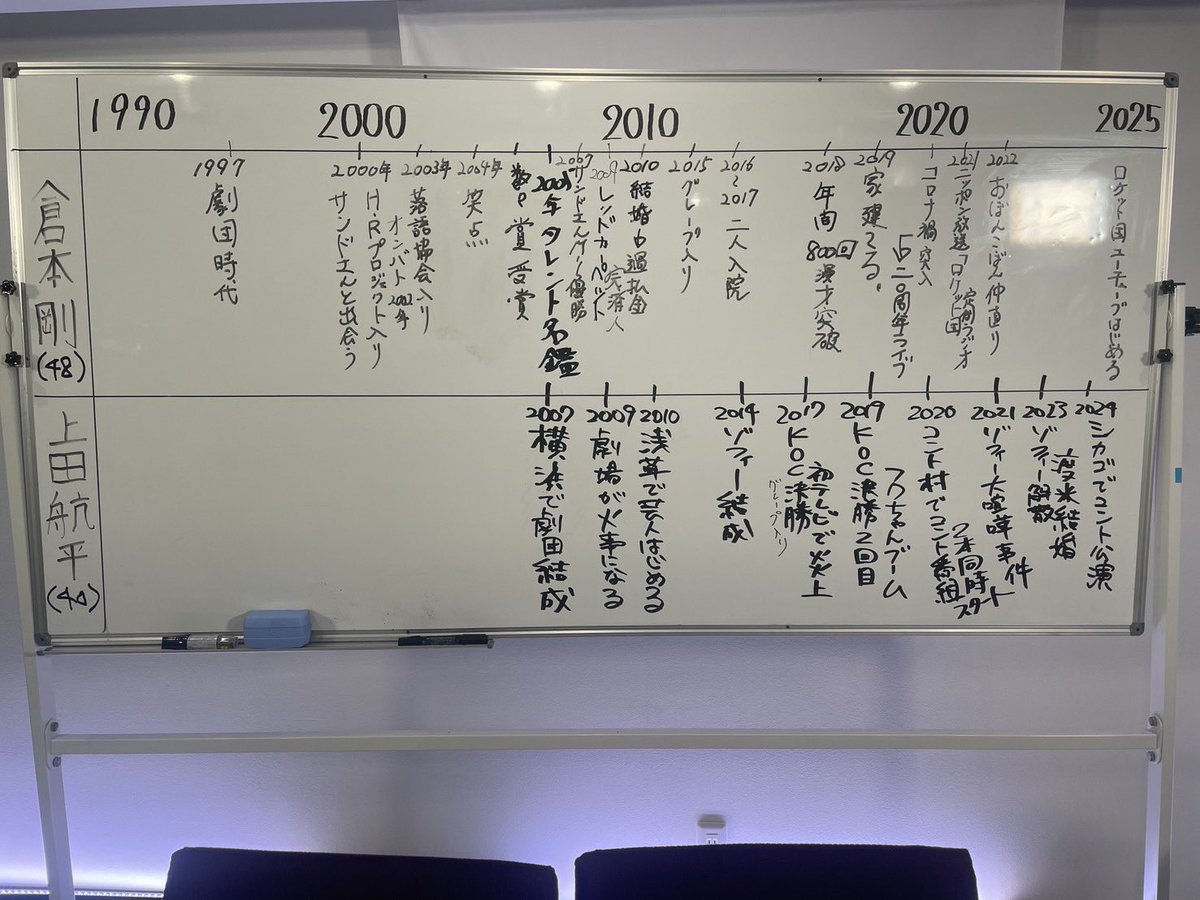 1990
2000
2010
2020
2025
倉本剛
(48)
1997
劇団時代
2000年
H・Rプロジェクト入り
サンドさんと出会う
2003年
落語協会入り
オンバト2002年
2004年
笑点
数々賞受賞
タレント名鑑
2007
サンドさんM-1優勝
2009
レッドカーペット
2010
結婚
過払金
2015
グレープ入り
2016
〜
2017
二人入院
2018
年間800回漫才突破
2019
家建てる。
二〇周年ライブ
コロナ禍突入
2021
ニッポン放送「ロケット団」
定期ラジオ
2022
おぼんこぼん仲直り
ロケット団ユーチューブはじめる
上田航平
(40)
2007
横浜で劇団結成
2009
劇場が火事になる
2010
浅草で芸人はじめる
2014
ゾフィー結成
2017
KOC決勝
初テレビで炎上
グレープ入り
2019
KOC決勝2回目
ふくちゃんブーム
2020
コント村でコント番組
2本同時スタート
2021
ゾフィー大喧嘩事件
2023
ゾフィー解散
渡米結婚
2024
シカゴでコント公演